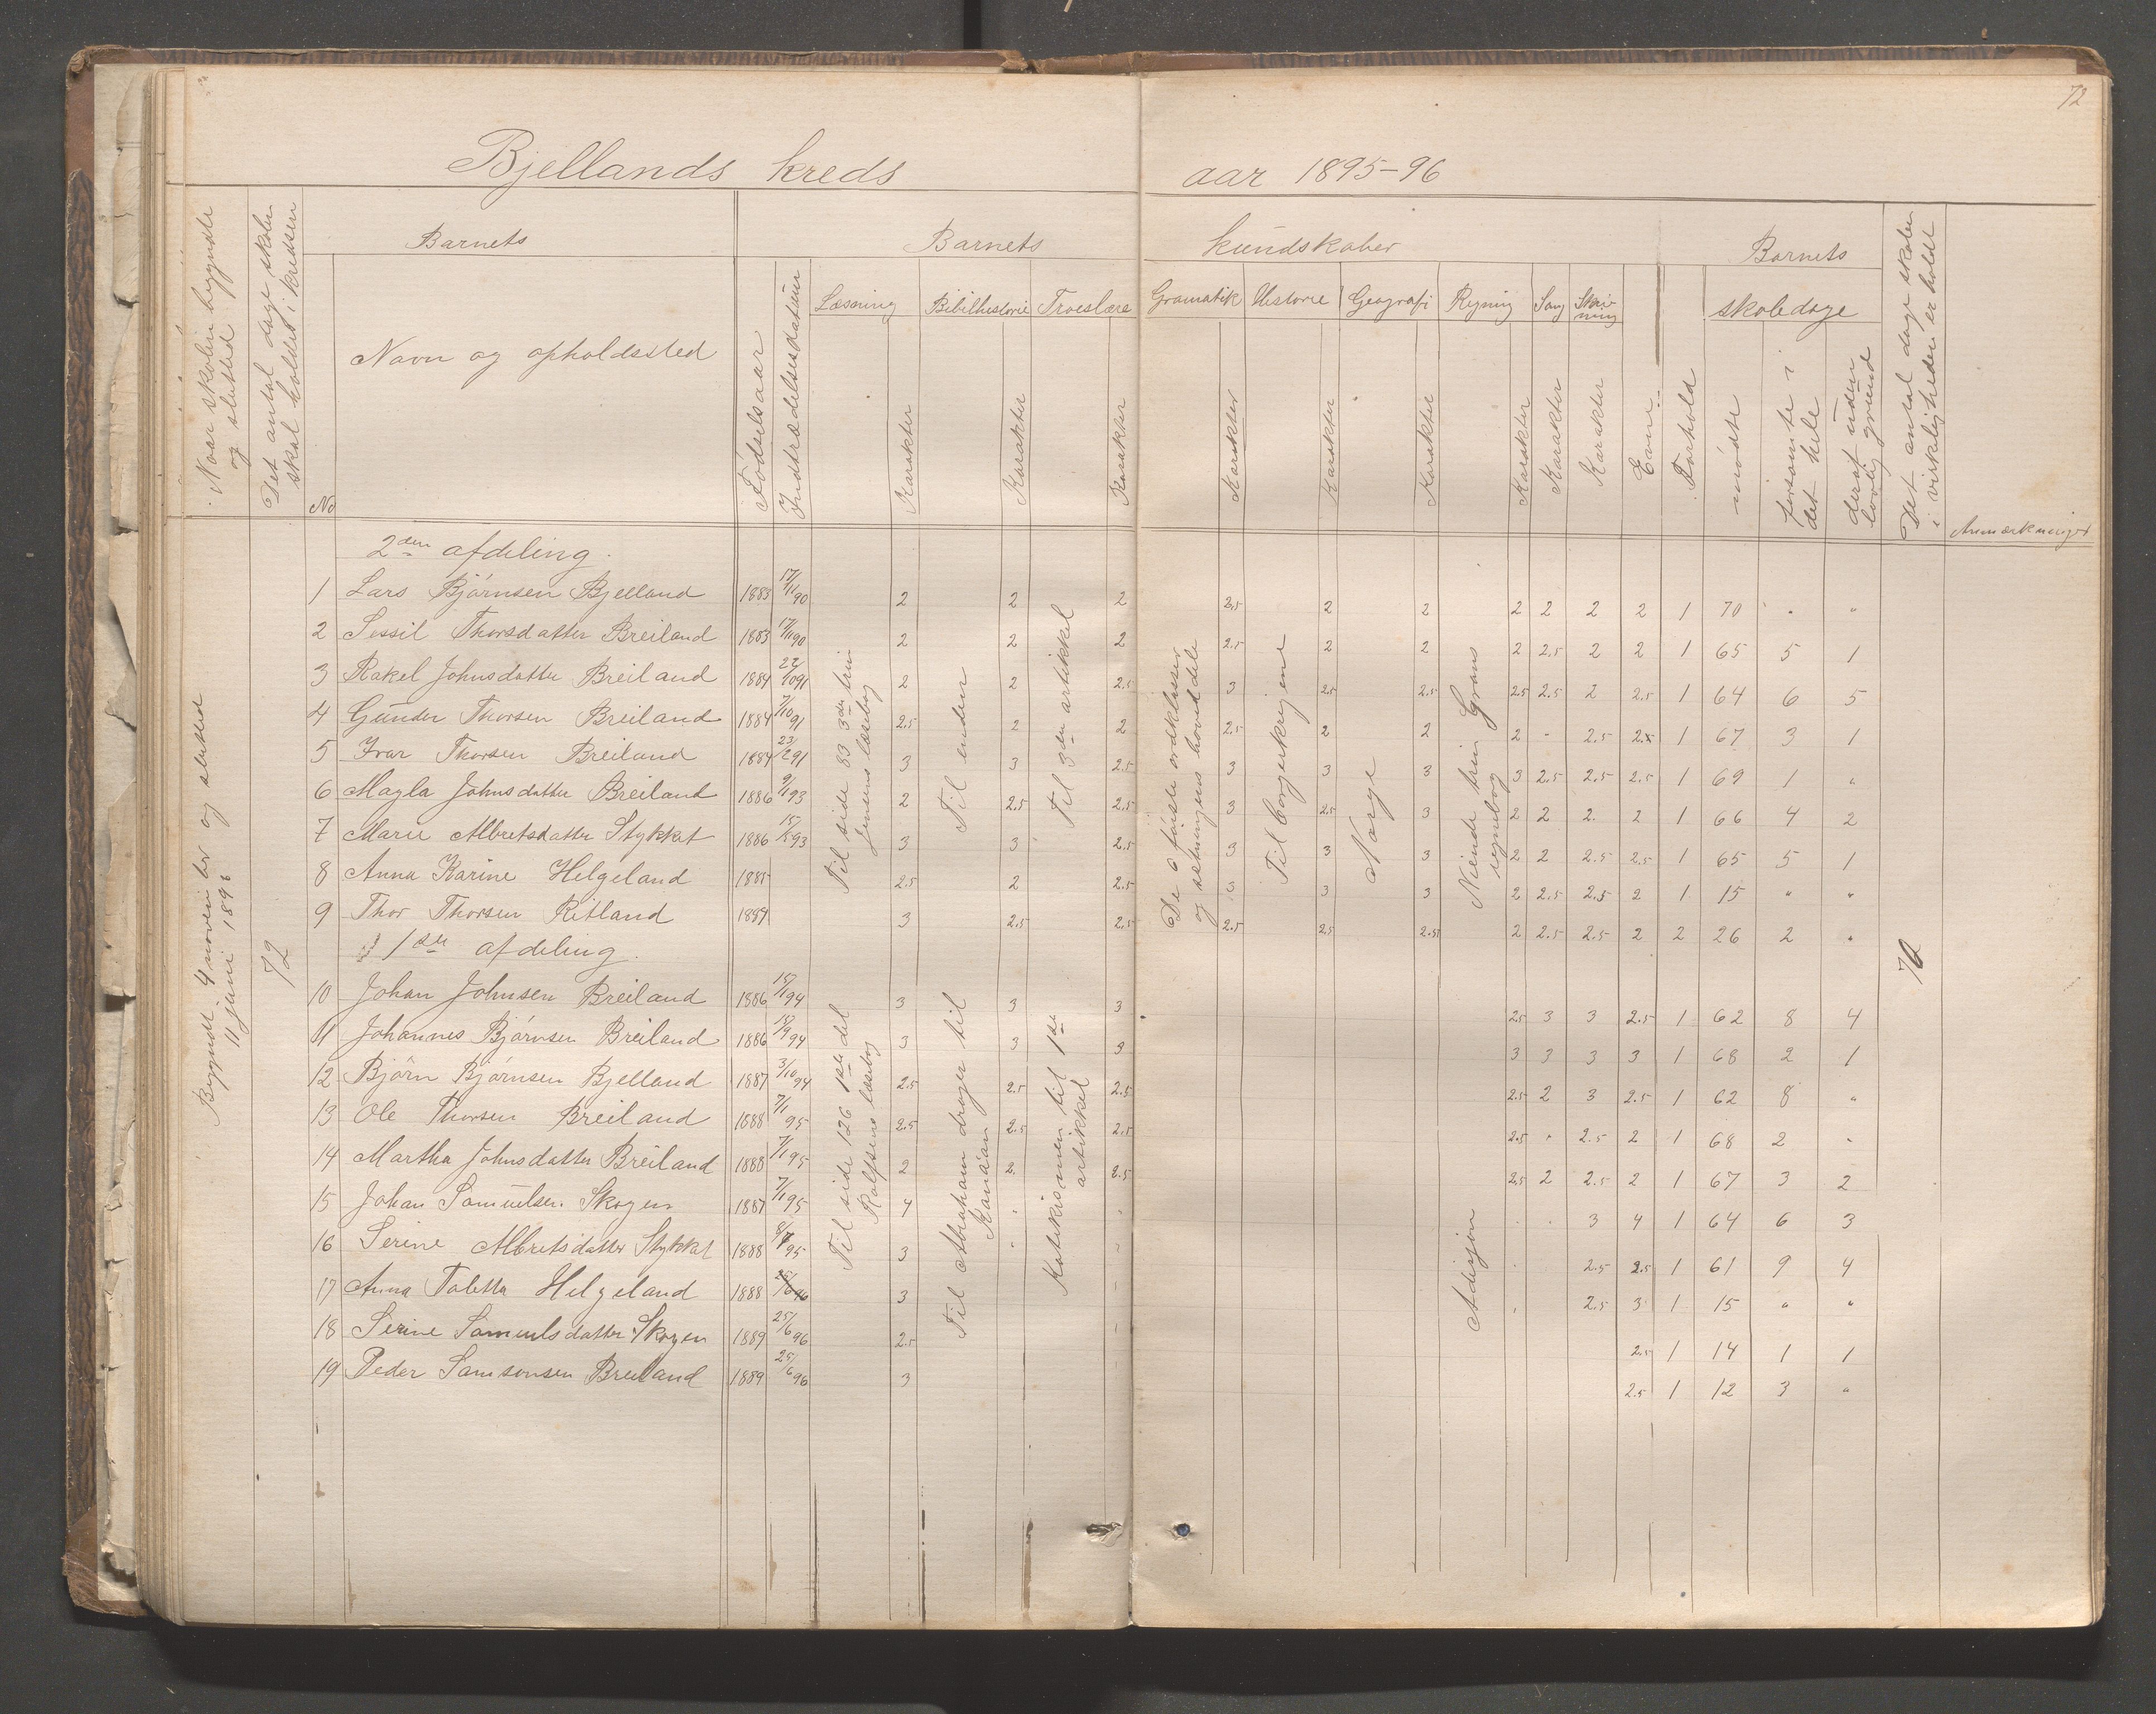 72
Bjellands kreds aar 1895-96
Naar skolen begyndte og slutted
Det antal dage skolen skal holdes i kredsen
No
Barnets
Navn og opholdssted
Fødselsaar
Indtrædelsesdatum
Barnets kundskaber
Læsning Karakter
Bibelhistorie Karakter
Troeslære Karakter
Gramatik Karakter
Historie Karakter
Geografi Karakter
Regning Karakter
Sang Karakter
Skrivning Karakter
Evne
Forhold
Barnets skoledage
mødte
forsømte i det hele
deraf uden lovlig grund
Det antal dage skolen i virkeligheden er holdt
Anmærkninger
Begyndt 4 november og slutted 11 juni 1896
72
2den afdeling.
1 Lars Bjørnsen Bjelland 1883 17/11 90 2 2 2 2.5 2 2 2 2 2 2 1 70 " "
2 Sessil Thorsdatter Breiland 1883 17/11 90 2 2 2 2.5 2 2 2 2.5 2 2 1 65 5 1
3 Rakel Johnsdatter Breiland 1884 22/10 91 2 2 2.5 3 2.5 2.5 2.5 2.5 2 2.5 1 64 6 5
4 Gunder Thorsen Breiland 1884 7/10 91 2.5 2 2 2.5 2 2 2 - 2.5 2.5 1 67 3 1
5 Ivar Thorsen Breiland 1884 23/2 91 3 3 2.5 3 3 3 3 2.5 2.5 2.5 1 69 1 "
6 Magla Johnsdatter Breiland 1886 9/1 93 2 2.5 2.5 3 2.5 3 2 2 2 2 1 66 4 2
7 Marie Albretsdatter Stykket 1886 15/5 93 3 3 2.5 3 3 3 2 2 2.5 2.5 1 65 5 1
8 Anna Karine Helgeland 1885 2.5 2 2.5 3 3 3 2 2.5 2.5 2 1 15 " "
9 Thor Thorsen Ritland 1884 3 2.5 2.5 2.5 2.5 2.5 2 2.5 2.5 2 2 26 2 "
Til side 83 3die trin Jensens læsebog
Til enden
Til 3den artikkel
De 6 første ordklasser og setningens hoveddele
Til borgerkrigene
Norge
Niende trin Grøns regnebog
70
1ste afdeling.
10 Johan Johnsen Breiland 1886 15/1 94 3 3 3 2.5 3 3 2.5 1 62 8 4
11 Johannes Bjørnsen Breiland 1886 18/9 94 3 3 3 3 3 3 3 1 68 2 1
12 Bjørn Bjørnsen Bjelland 1887 3/10 94 2.5 2.5 2.5 2.5 2 3 2.5 1 62 8 "
13 Ole Thorsen Breiland 1888 7/1 95 2.5 2.5 2.5 2.5 " 2.5 2 1 68 2 "
14 Martha Johnsdatter Breiland 1888 7/1 95 2 2 2.5 2.5 2 2.5 2 1 67 3 2
15 Johan Samuelsen Skogen 1887 7/1 95 4 " " " " 3 4 1 64 6 3
16 Serine Albretsdatter Stykket 1888 8/1 95 3 " " " 2.5 2.5 1 61 9 4
17 Anna Taletta Helgeland 1888 25/6 96 3 " " 2.5 3 1 15 " "
18 Serine Samuelsdatter Skogen 1889 25/6 96 2.5 " 2.5 1 14 1 1
19 Peder Samsonsen Breiland 1889 25/6 96 3 " 2.5 1 12 3 "
Til side 126 1ste del Rolfsens læsebog
Til Abraham drager til Kanaan
Katekismen til 1ste artikkel
Adisjon